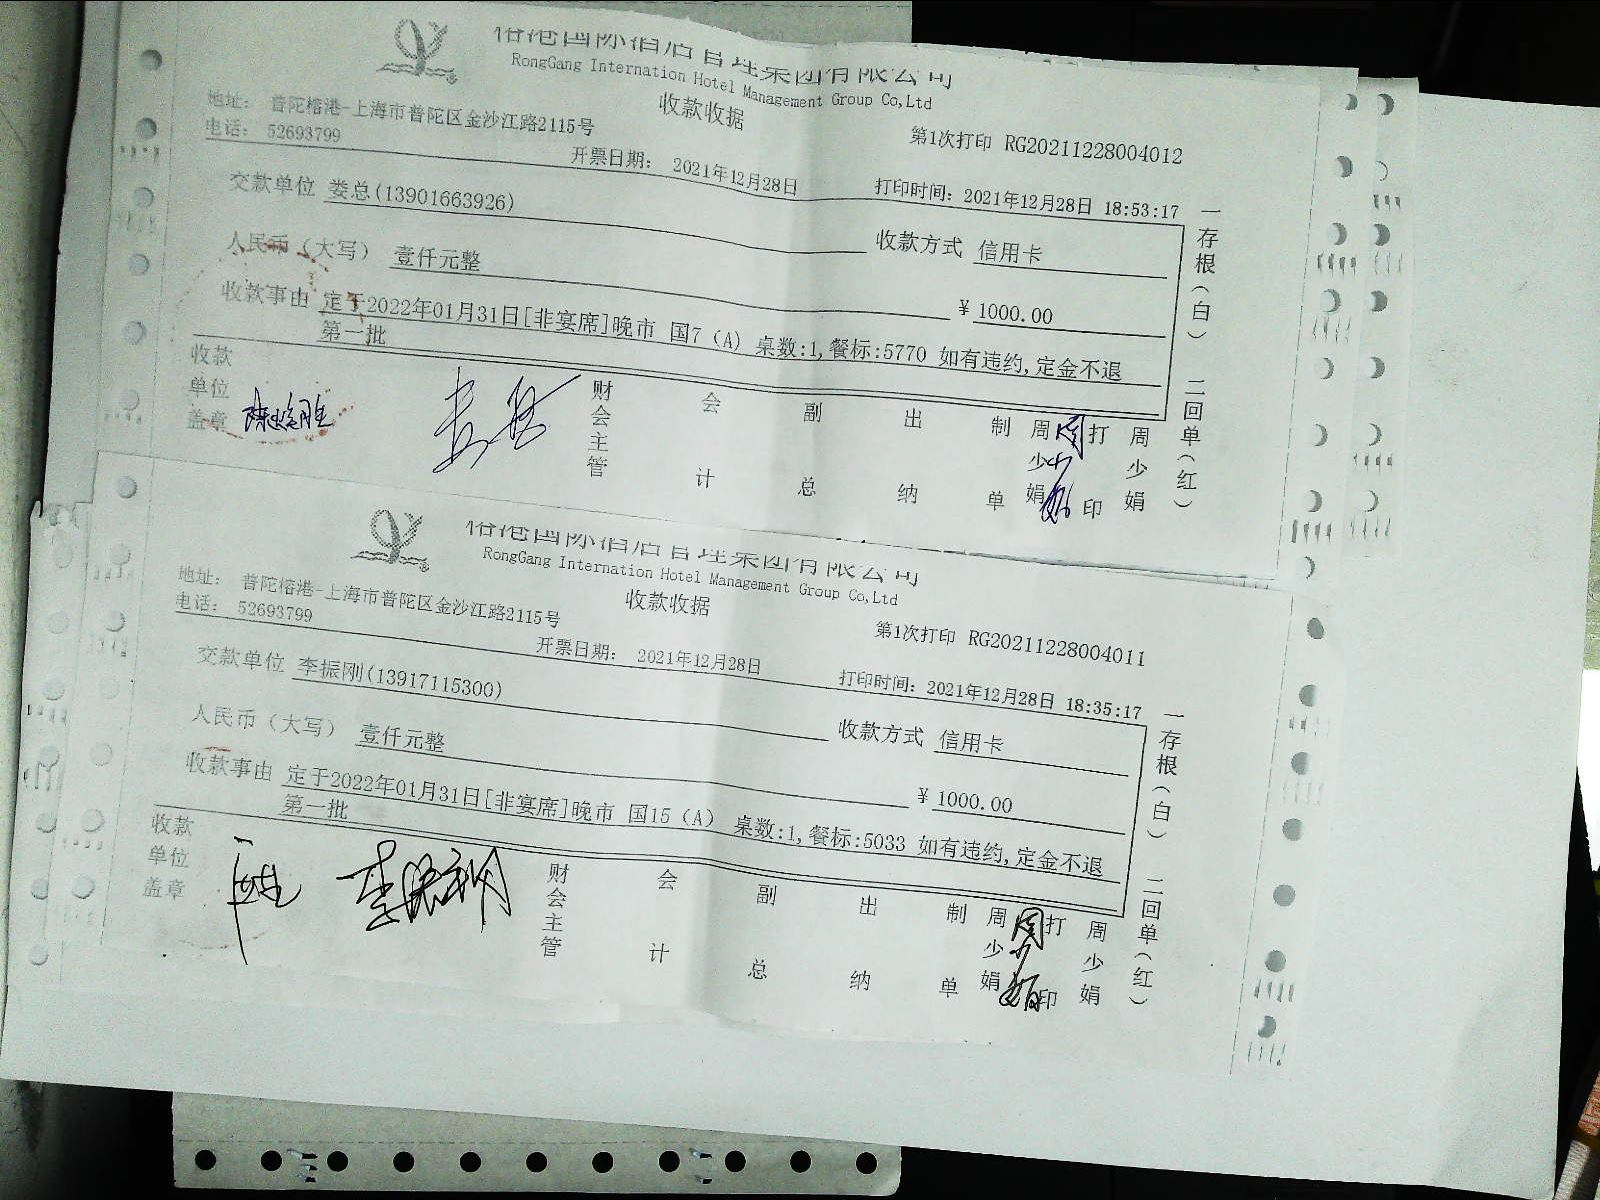 榕港国际酒店管理集团有限公司
RongGang Internation Hotel Management Group Co,Ltd
收款收据
地址: 普陀榕港-上海市普陀区金沙江路2115号
电话: 52693799
第1次打印 RG20211228004012
开票日期: 2021年12月28日
打印时间: 2021年12月28日 18:53:17
交款单位 娄总(13901663926)
收款方式 信用卡
人民币（大写） 壹仟元整
¥ 1000.00
收款事由 定于2022年01月31日[非宴席]晚市 国7（A）桌数:1,餐标:5770 如有违约,定金不退
第一批
一存根（白） 二回单（红）
收款单位盖章
财会主管
会计
副总
出纳
制单 周少娟 周少娟
打印 周少娟
榕港国际酒店管理集团有限公司
RongGang Internation Hotel Management Group Co,Ltd
收款收据
地址: 普陀榕港-上海市普陀区金沙江路2115号
电话: 52693799
第1次打印 RG20211228004011
开票日期: 2021年12月28日
打印时间: 2021年12月28日 18:35:17
交款单位 李振刚(13917115300)
收款方式 信用卡
人民币（大写） 壹仟元整
¥ 1000.00
收款事由 定于2022年01月31日[非宴席]晚市 国15（A）桌数:1,餐标:5033 如有违约,定金不退
第一批
一存根（白） 二回单（红）
收款单位盖章
李振刚
财会主管
会计
副总
出纳
制单 周少娟 周少娟
打印 周少娟